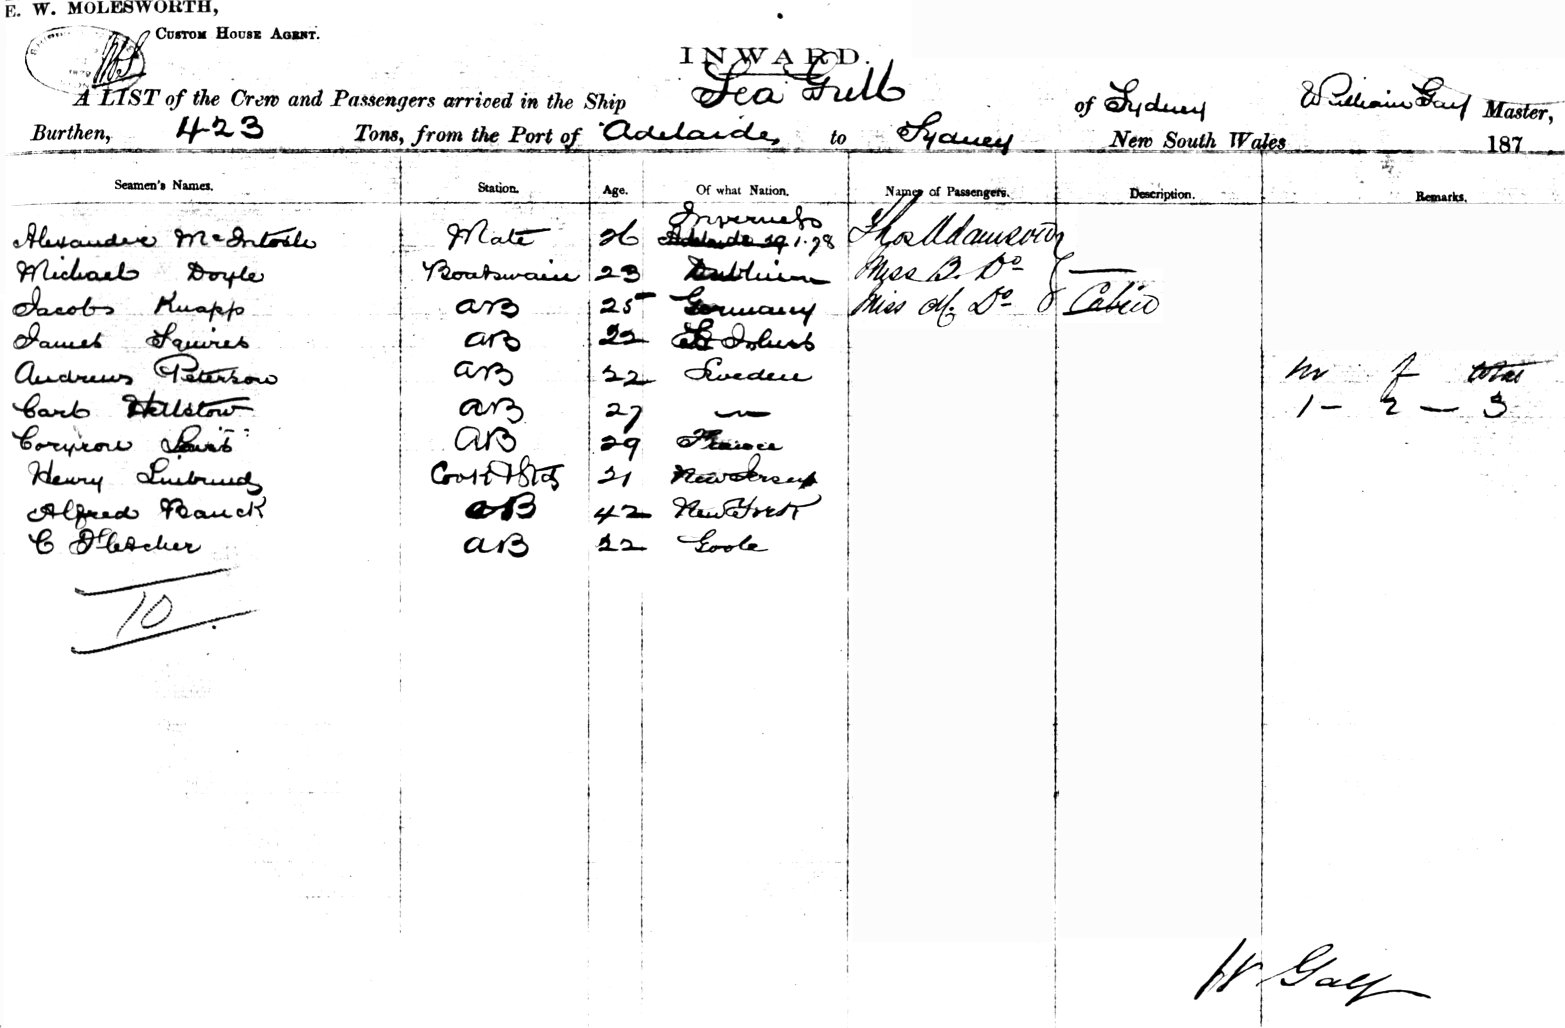 E. W. MOLESWORTH,
CUSTOM HOUSE AGENT.
INWARD.
A LIST of the Crew and Passengers arrived in the Ship Sea Gull of Sydney William Gay Master,
Burthen, 423 Tons, from the Port of Adelaide to Sydney New South Wales 187
Seamen's Names. Station. Age. Of what Nation. Names of Passengers. Description. Remarks.
Inverness
Alexander McIntosh Mate 26 Adelaide 29.1.78 Thos Adamson
Michael Doyle Boatswain 23 Dublin Miss B. Do
Jacob Knapp AB 25 Germany Miss M. Do Cabin
James Squires AB 22 St Johns
Andrews Peterson AB 22 Sweden m f total
Carl AB 27 1 - 2 - 3
Lewis AB 29 France
Henry Cook & Std 21 New Jersey
Alfred Bauck AB 42 New York
C Fletcher AB 22 Goole
10
W Gay